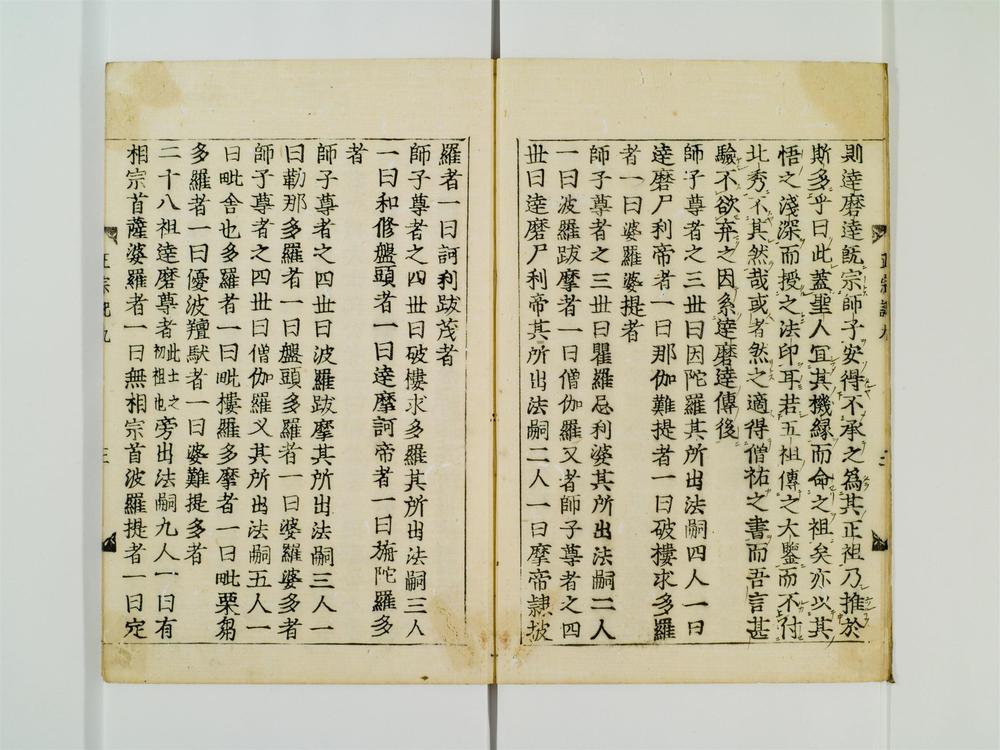 則達磨達既宗師子安得不承之爲其正祖乃推於
斯多乎曰此蓋聖人冝其機縁而命之祖矣亦以其
悟之淺深而授之法印耳若五祖傳之大鑒而不付
北秀不其然哉或者然之適得僧祐之書而吾言甚
驗不欲弃之因系達磨達傳後
師子尊者之三世曰因陀羅其所出法嗣四人一曰
達磨尸利帝者一曰那伽難提者一曰破樓求多羅
者一曰婆羅婆提者
師子尊者之三世曰瞿羅忌利婆其所出法嗣二人
一曰波羅跋摩者一曰僧伽羅叉者師子尊者之四
世曰達磨尸利帝其所出法嗣二人一曰摩帝隷披
羅者一曰訶利跋茂者
師子尊者之四世曰破樓求多羅其所出法嗣三人
一曰和修盤頭者一曰達摩訶帝者一曰旃陀羅多
者
師子尊者之四世曰波羅跋摩其所出法嗣三人一
曰勒那多羅者一曰盤頭多羅者一曰婆羅婆多者
師子尊者之四世曰僧伽羅叉其所出法嗣五人一
曰毗舍也多羅者一曰毗樓羅多摩者一曰毗栗芻
多羅者一曰優波羶馱者一曰婆難提多者
二十八祖達磨尊者此土之初祖也旁出法嗣九人一曰有
相宗首薩婆羅者一曰無相宗首波羅提者一曰定
正宗記九
三